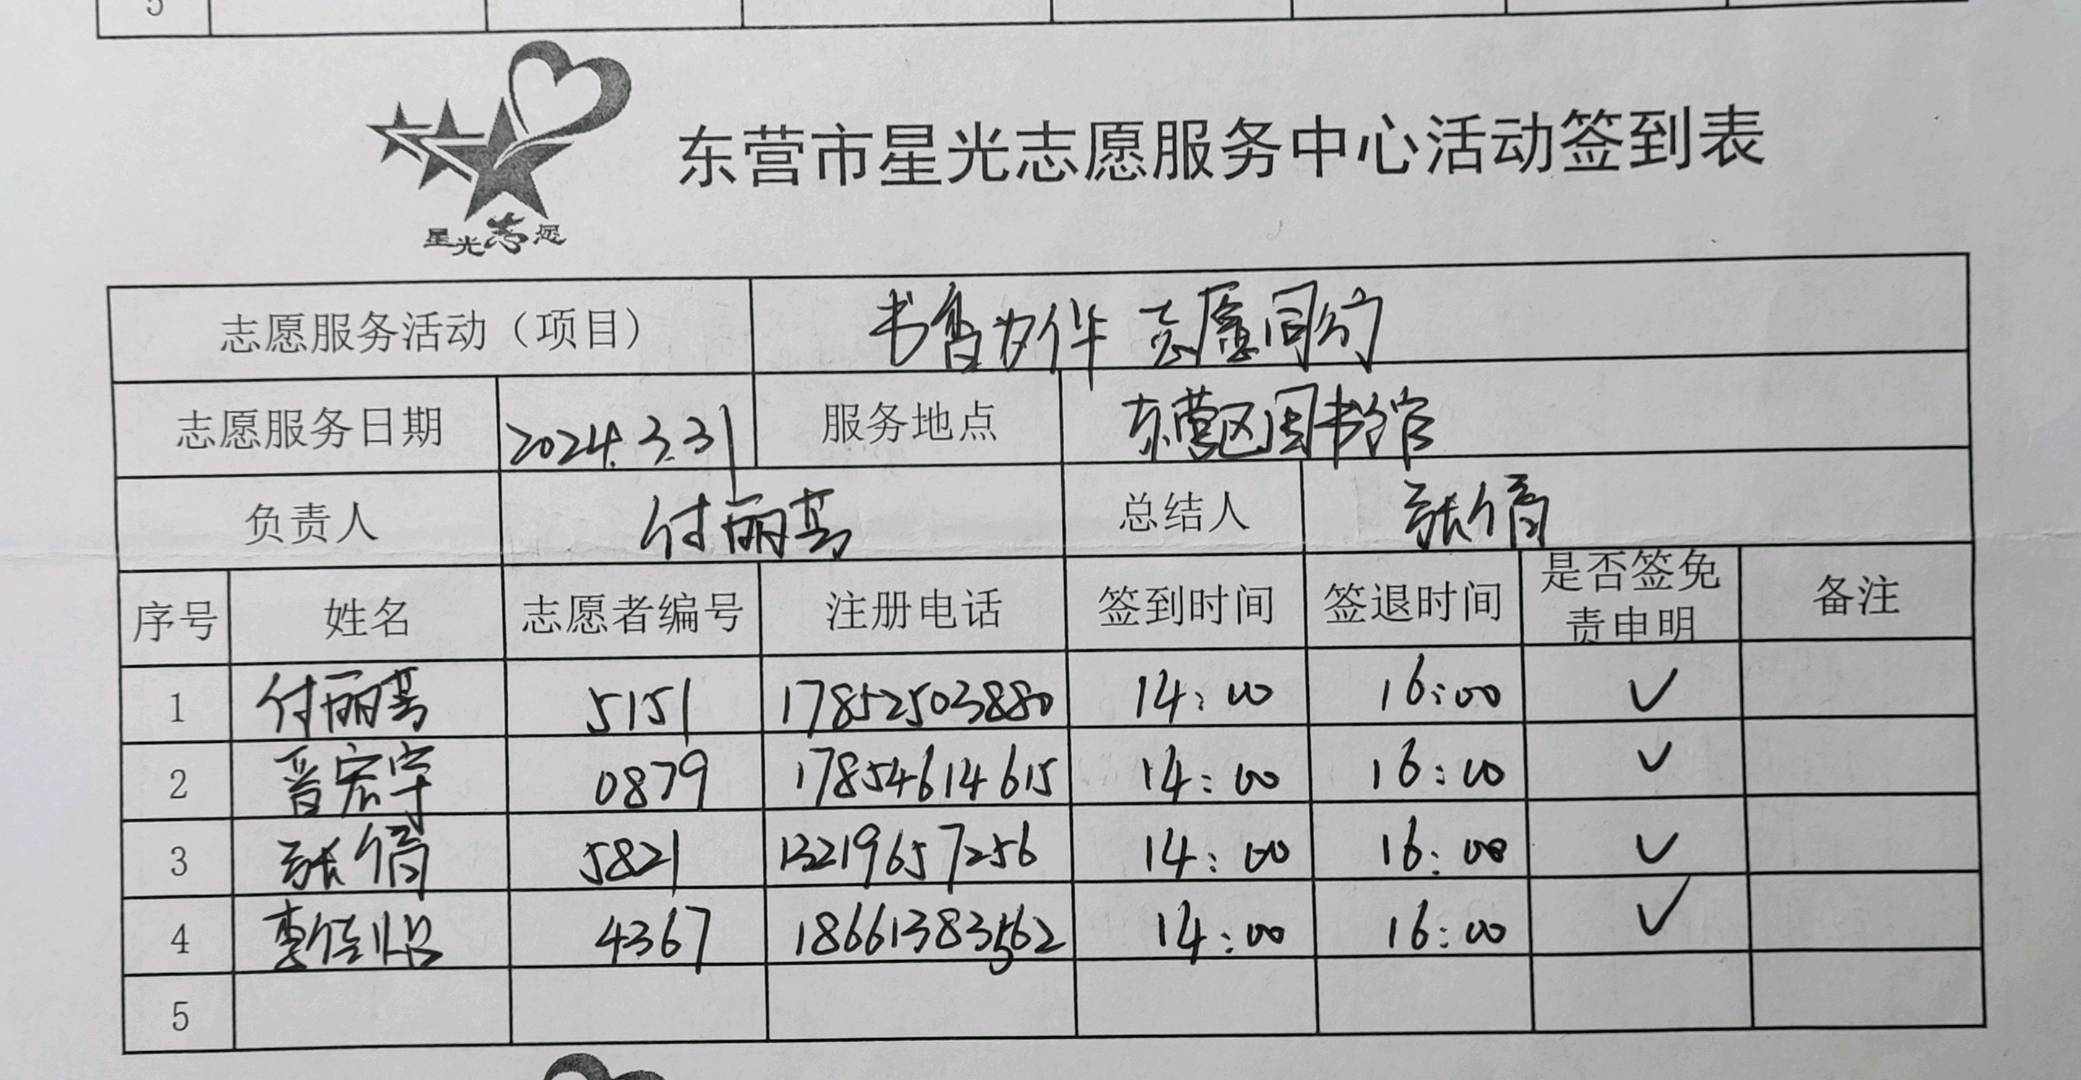 5
星光志愿
东营市星光志愿服务中心活动签到表
志愿服务活动（项目） 书香为伴 志愿同行
志愿服务日期 2024.3.31 服务地点 东营区图书馆
负责人 付丽 总结人 张倩
序号 姓名 志愿者编号 注册电话 签到时间 签退时间 是否签免责申明 备注
1 付丽 5151 17852503880 14:00 16:00 ✓
2 晋宏宇 0879 17854614615 14:00 16:00 ✓
3 张倩 5821 13219657256 14:00 16:00 ✓
4 李佳怡 4367 18661383562 14:00 16:00 ✓
5